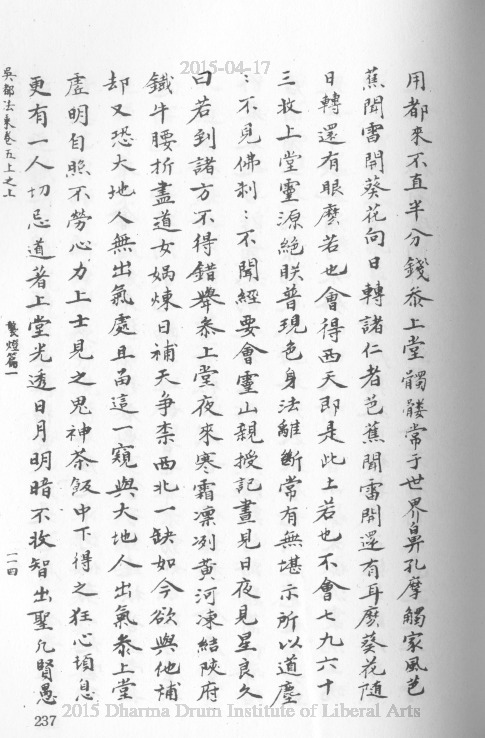 2015-04-17
用都來不直半分錢叅上堂髑髏常于世界鼻孔摩觸家風芭
蕉聞雷開葵花向日轉諸仁者芭蕉聞雷開還有耳麼葵花隨
日轉還有眼麼若也會得西天即是此土若也不會七九六十
三收上堂靈源絕朕普現色身法離斷常有無堪示所以道塵
：不見佛刹：不聞經要會靈山親授記晝見日夜見星良久
曰若到諸方不得錯舉叅上堂夜來寒霜凛冽黃河凍結陝府
鐵牛腰折盡道女媧煉日補天爭柰西北一缺如今欲與他補
却又恐大地人無出氣處且留這一竅與大地人出氣叅上堂
虛明自照不勞心力上士見之鬼神茶飯中下得之狂心頓息
更有一人切忌道著上堂光透日月明暗不收智出聖凡賢愚
吳都法乘卷五上之上
襲燈篇一
一一四
237
2015 Dharma Drum Institute of Liberal Arts